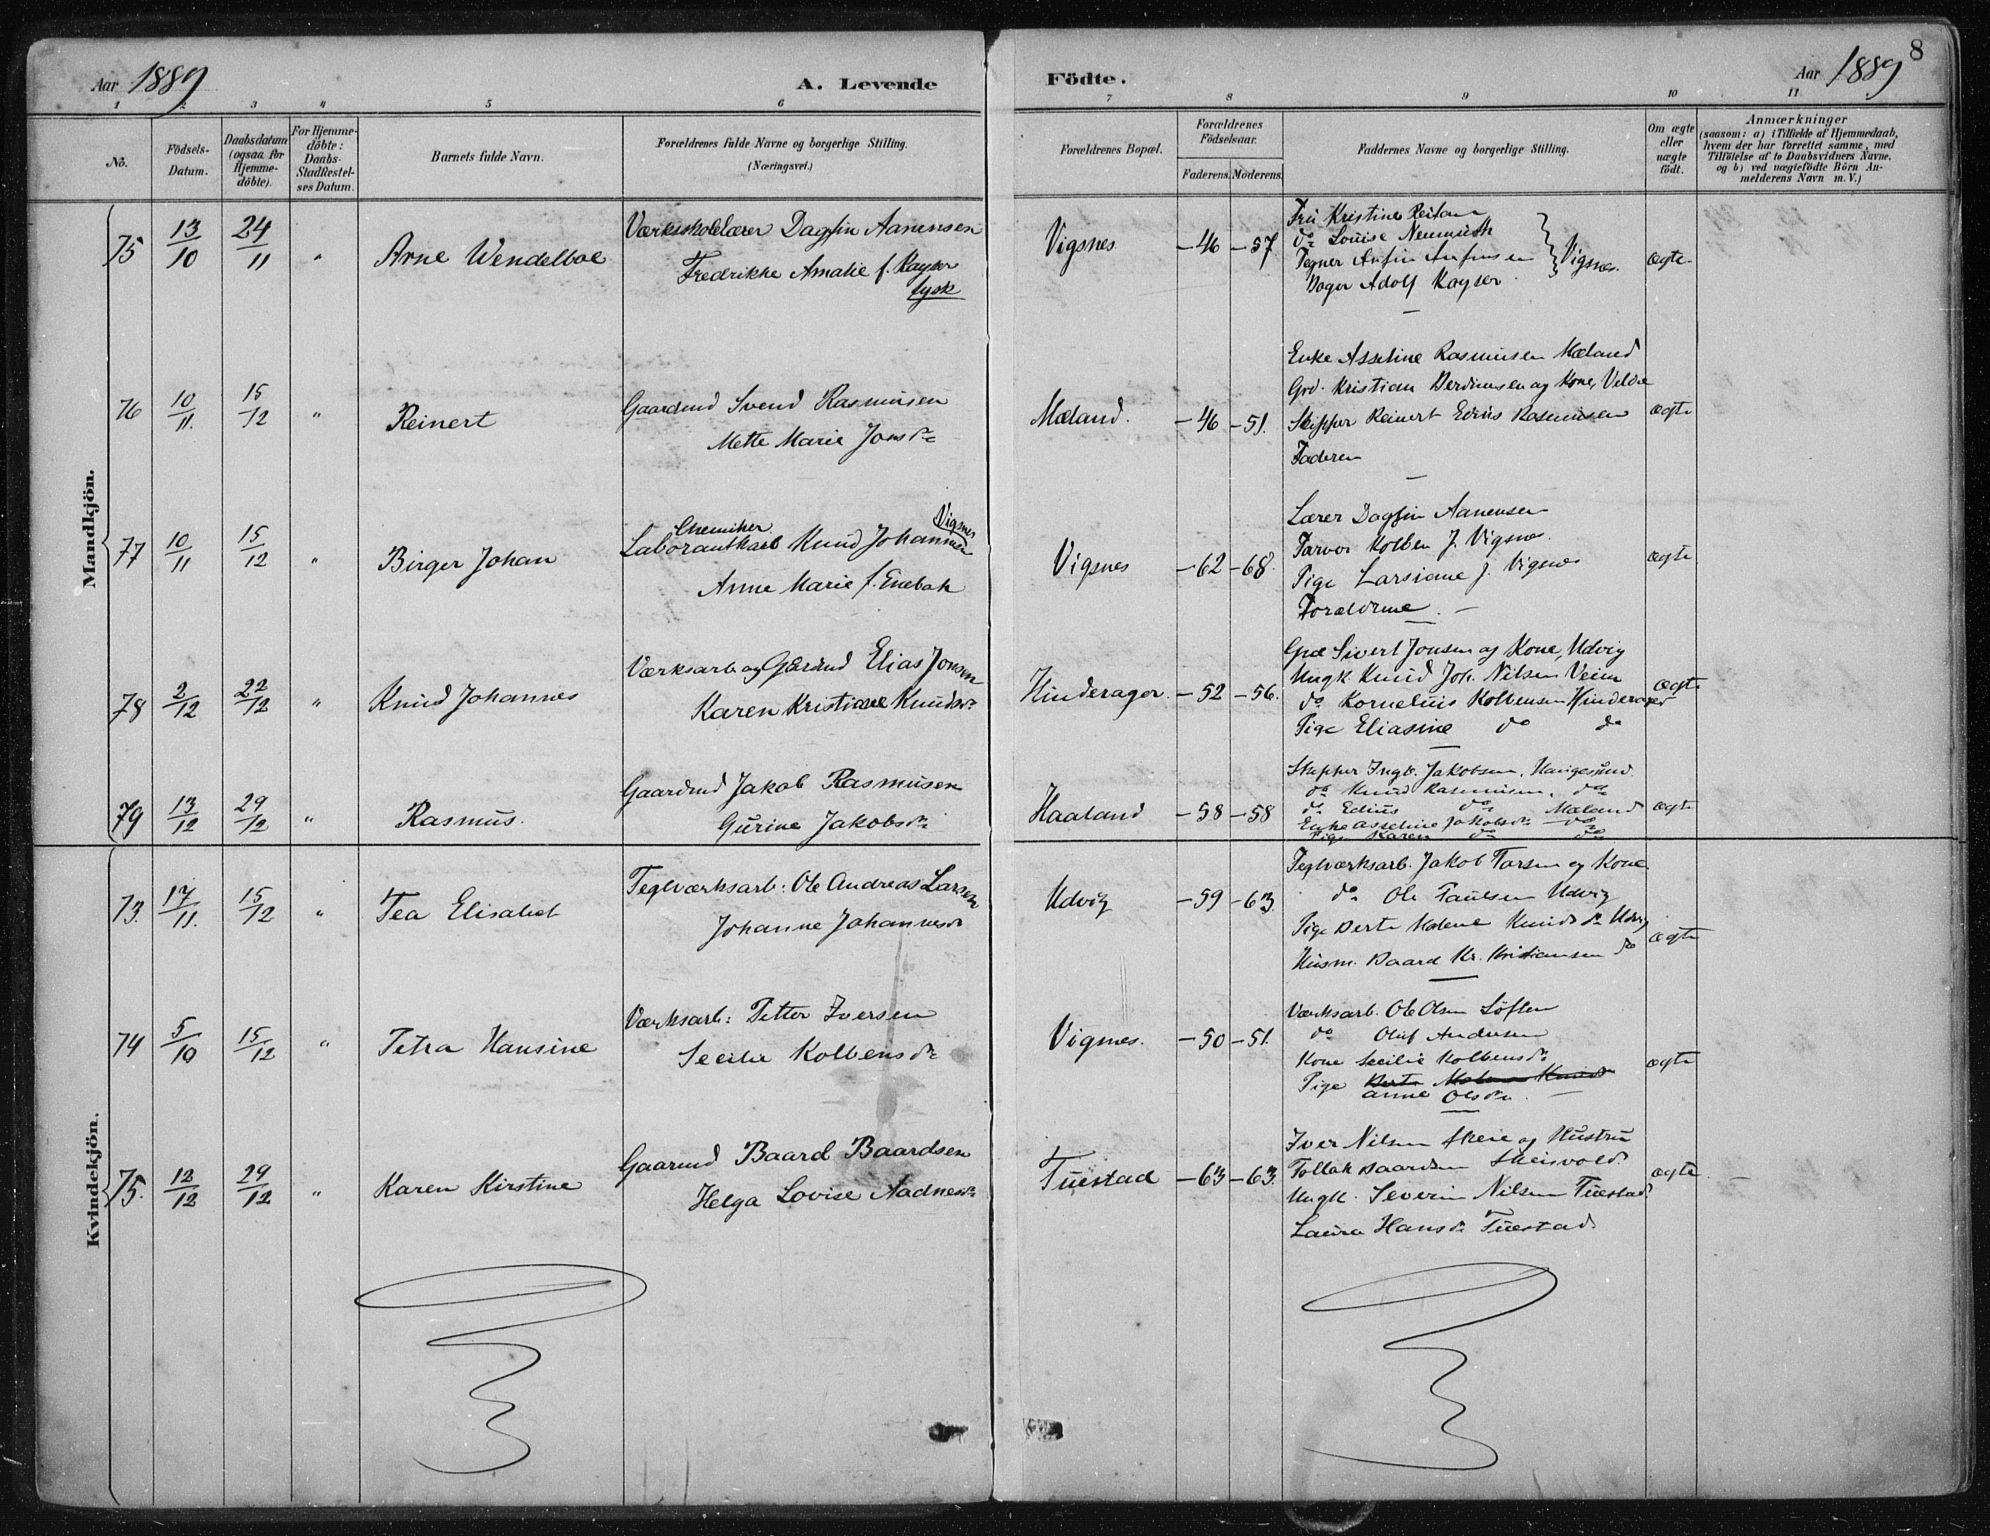 Aar 1889
A. Levende
Födte.
Aar 1889
8
1 2 3 4 5 6 7 8 9 10 11
No.
Födsels-Datum.
Daabsdatum (ogsaa for Hjemme-döbte).
For Hjemme-döbte: Daabs-Stadfæstel-ses Datum.
Barnets fulde Navn.
Forældrenes fulde Navne og borgerlige Stilling. (Næringsvei.)
Forældrenes Bopæl.
Forældrenes Födselsaar.
Faderens. Moderens.
Faddernes Navne og borgerlige Stilling.
Om ægte eller uægte födt.
Anmærkninger
(saasom: a) i Tilfælde af Hjemmedaab,
hvem der har forrettet samme, med
Tilföielse af to Daabsvidners Navne.
og b) ved uægtefödte Börn An-
melderens Navn m. V.)
Mandkjön.
75 13/10 24/11 " Arne Wendelboe
Værksskolelærer Dagfin Aanensen
Fredrikke Amalie f. Kayser
tysk
Vigsnes -46 -57
Fru Kristine Reitan
do Louise Neumuth
Tegner Anfin Anfinsen
Bager Adolf Kayser
Vigsnes.
ægte
76 10/11. 15/12 " Reinert
Gaardmd Svend Rasmusen
Mette Marie Jonsdr
Mæland. -46 -51.
Enke Asseline Rasmusen Mæland
Grd. Kristian Berdinesen og Kone, Veldre
Skipper Reinert Edius Rasmusen
Faderen
ægte
77 10/11 15/12 " Birger Johan
Chemiker Vigsnes
Laborantarb Knud Johannesen
Anne Marie f. Enebak
Vigsnes -62 -68.
Lærer Dagfin Aanensen
Farver Kolben J. Vigsnes.
Pige Larsiane J. Vigsnes
Forældrene.
ægte
78 2/12 22/12 " Knud Johannes
Værksarb og Gaardmd Elias Jonsen
Karen Kristiane Knudsdr
Hinderager. -52 -56.
Grd Sivert Jonsen og Kone, Udvig
Ungk Knud Joh. Nilsen Veim
do Kornelius Kolbensen Hinderager
Pige Eliasine do do
ægte
79 13/12 29/12 " Rasmus.
Gaardmd Jakob Rasmusen
Gurine Jakobsdr
Haaland -58 -58
Skipper Ingb. Jakobsen, Haugesund.
do Knud Rasmusen, do
do Edius do Mæland
Enke Asseline Jakobsdr do
Pige Karen do do
ægte
Kvindekjön.
73. 17/11. 15/12 " Tea Elisabet
Teglværksarb. Ole Andreas Larsen
Johanne Johannesdr
Udvig -59 -63
Teglværksarb. Jakob Larsen og Kone
do Ole Paulsen Udvig
Pige Berte Malene Knudsdr Udvig
Husm. Baard Kr. Kristiansen do
ægte
74 5/10 15/12 " Petra Hansine
Værksarb: Petter Iversen
Secilie Kolbensdr
Vigsnes. -50 -51.
Værksarb. Ole Olsen Løften
do Oluf Andersen
Kone Secilie Kolbensdr
Pige Berte Malene Knudsdr
Anne Olsdr
ægte
75. 12/12 29/12 " Karen Kirstine
Gaarmd Baard Baardsen
Helga Lovise Aadnesdr
Tuestad -63 -63.
Iver Nilsen Skeie og Hustru
Tollak Baardsen Skeisvold
Ungk. Severin Nilsen Tuestad
Laura Hansdr Tuestad
ægte